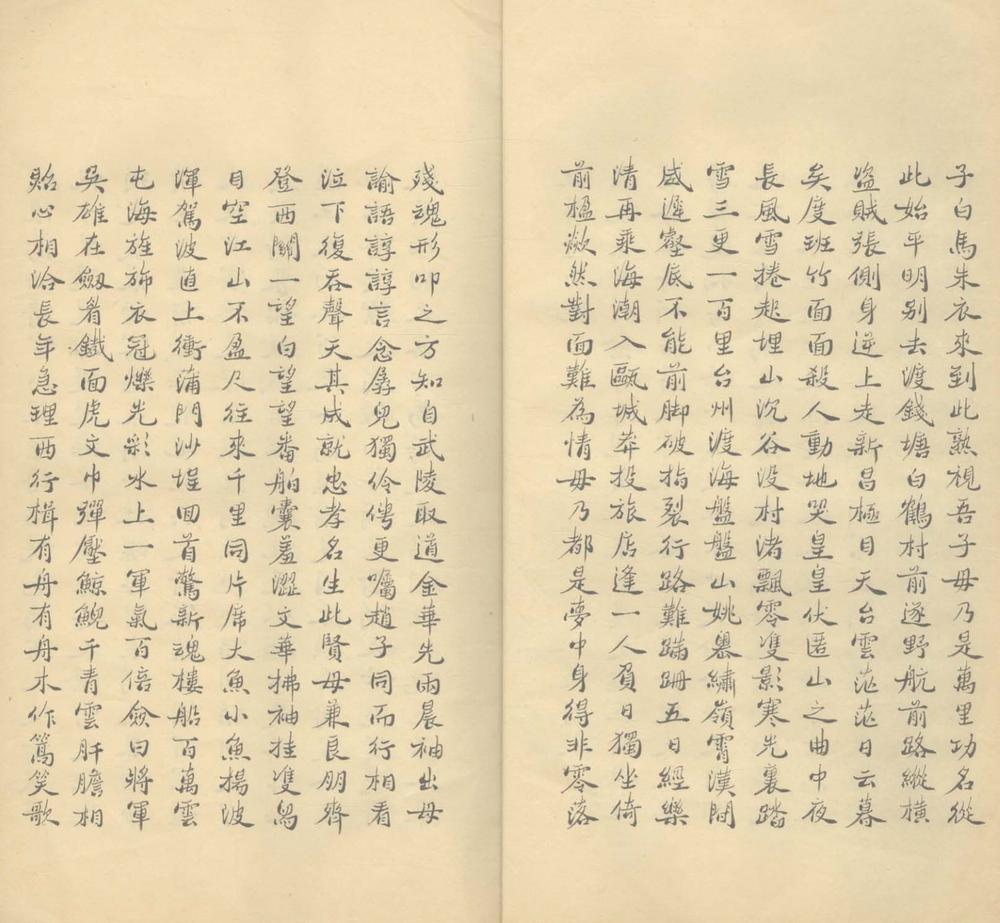 子白馬朱衣來到此熟視吾子毋乃是萬里功名從
此始平明别去渡錢塘白鶴村前遂野航前路縱横
盗賊張側身逆上走新昌極目天台雲茫茫日云暮
矣度班竹面面殺人動地哭皇皇伏匿山之曲中夜
長風雪捲起埋山沉谷没村渚飄零隻影寒光裏踏
雪三更一百里台州渡海盤盤山姚㠯繡嶺霄漢間
咸遲壑底不能前脚破指裂行路難蹣跚五日經樂
清再乘海潮入甌城莽投旅店逢一人負日獨坐倚
前楹歘然對面難為情毋乃都是夢中身得非零落
殘魂形叩之方知自武陵取道金華先兩晨袖出母
諭語諄諄言念孱兒獨伶俜更囑趙子同而行相看
泣下復吞聲天其成就忠孝名生此賢母兼良朋齊
登西關一望白望望番舶囊羞澀文華拂袖挂隻舄
目空江山不盈尺往來千里同片席大魚小魚揚波
渾駕波直上衝蒲門沙埕回首驚新魂樓船百萬雲
屯海旌斾衣冠爍光彩水上一軍氣百倍僉曰將軍
吳雄在劔眉鐵面虎文巾彈壓鯨鯢千青雲肝膽相
貽心相洽長年急理西行楫有舟有舟木作篙笑歌